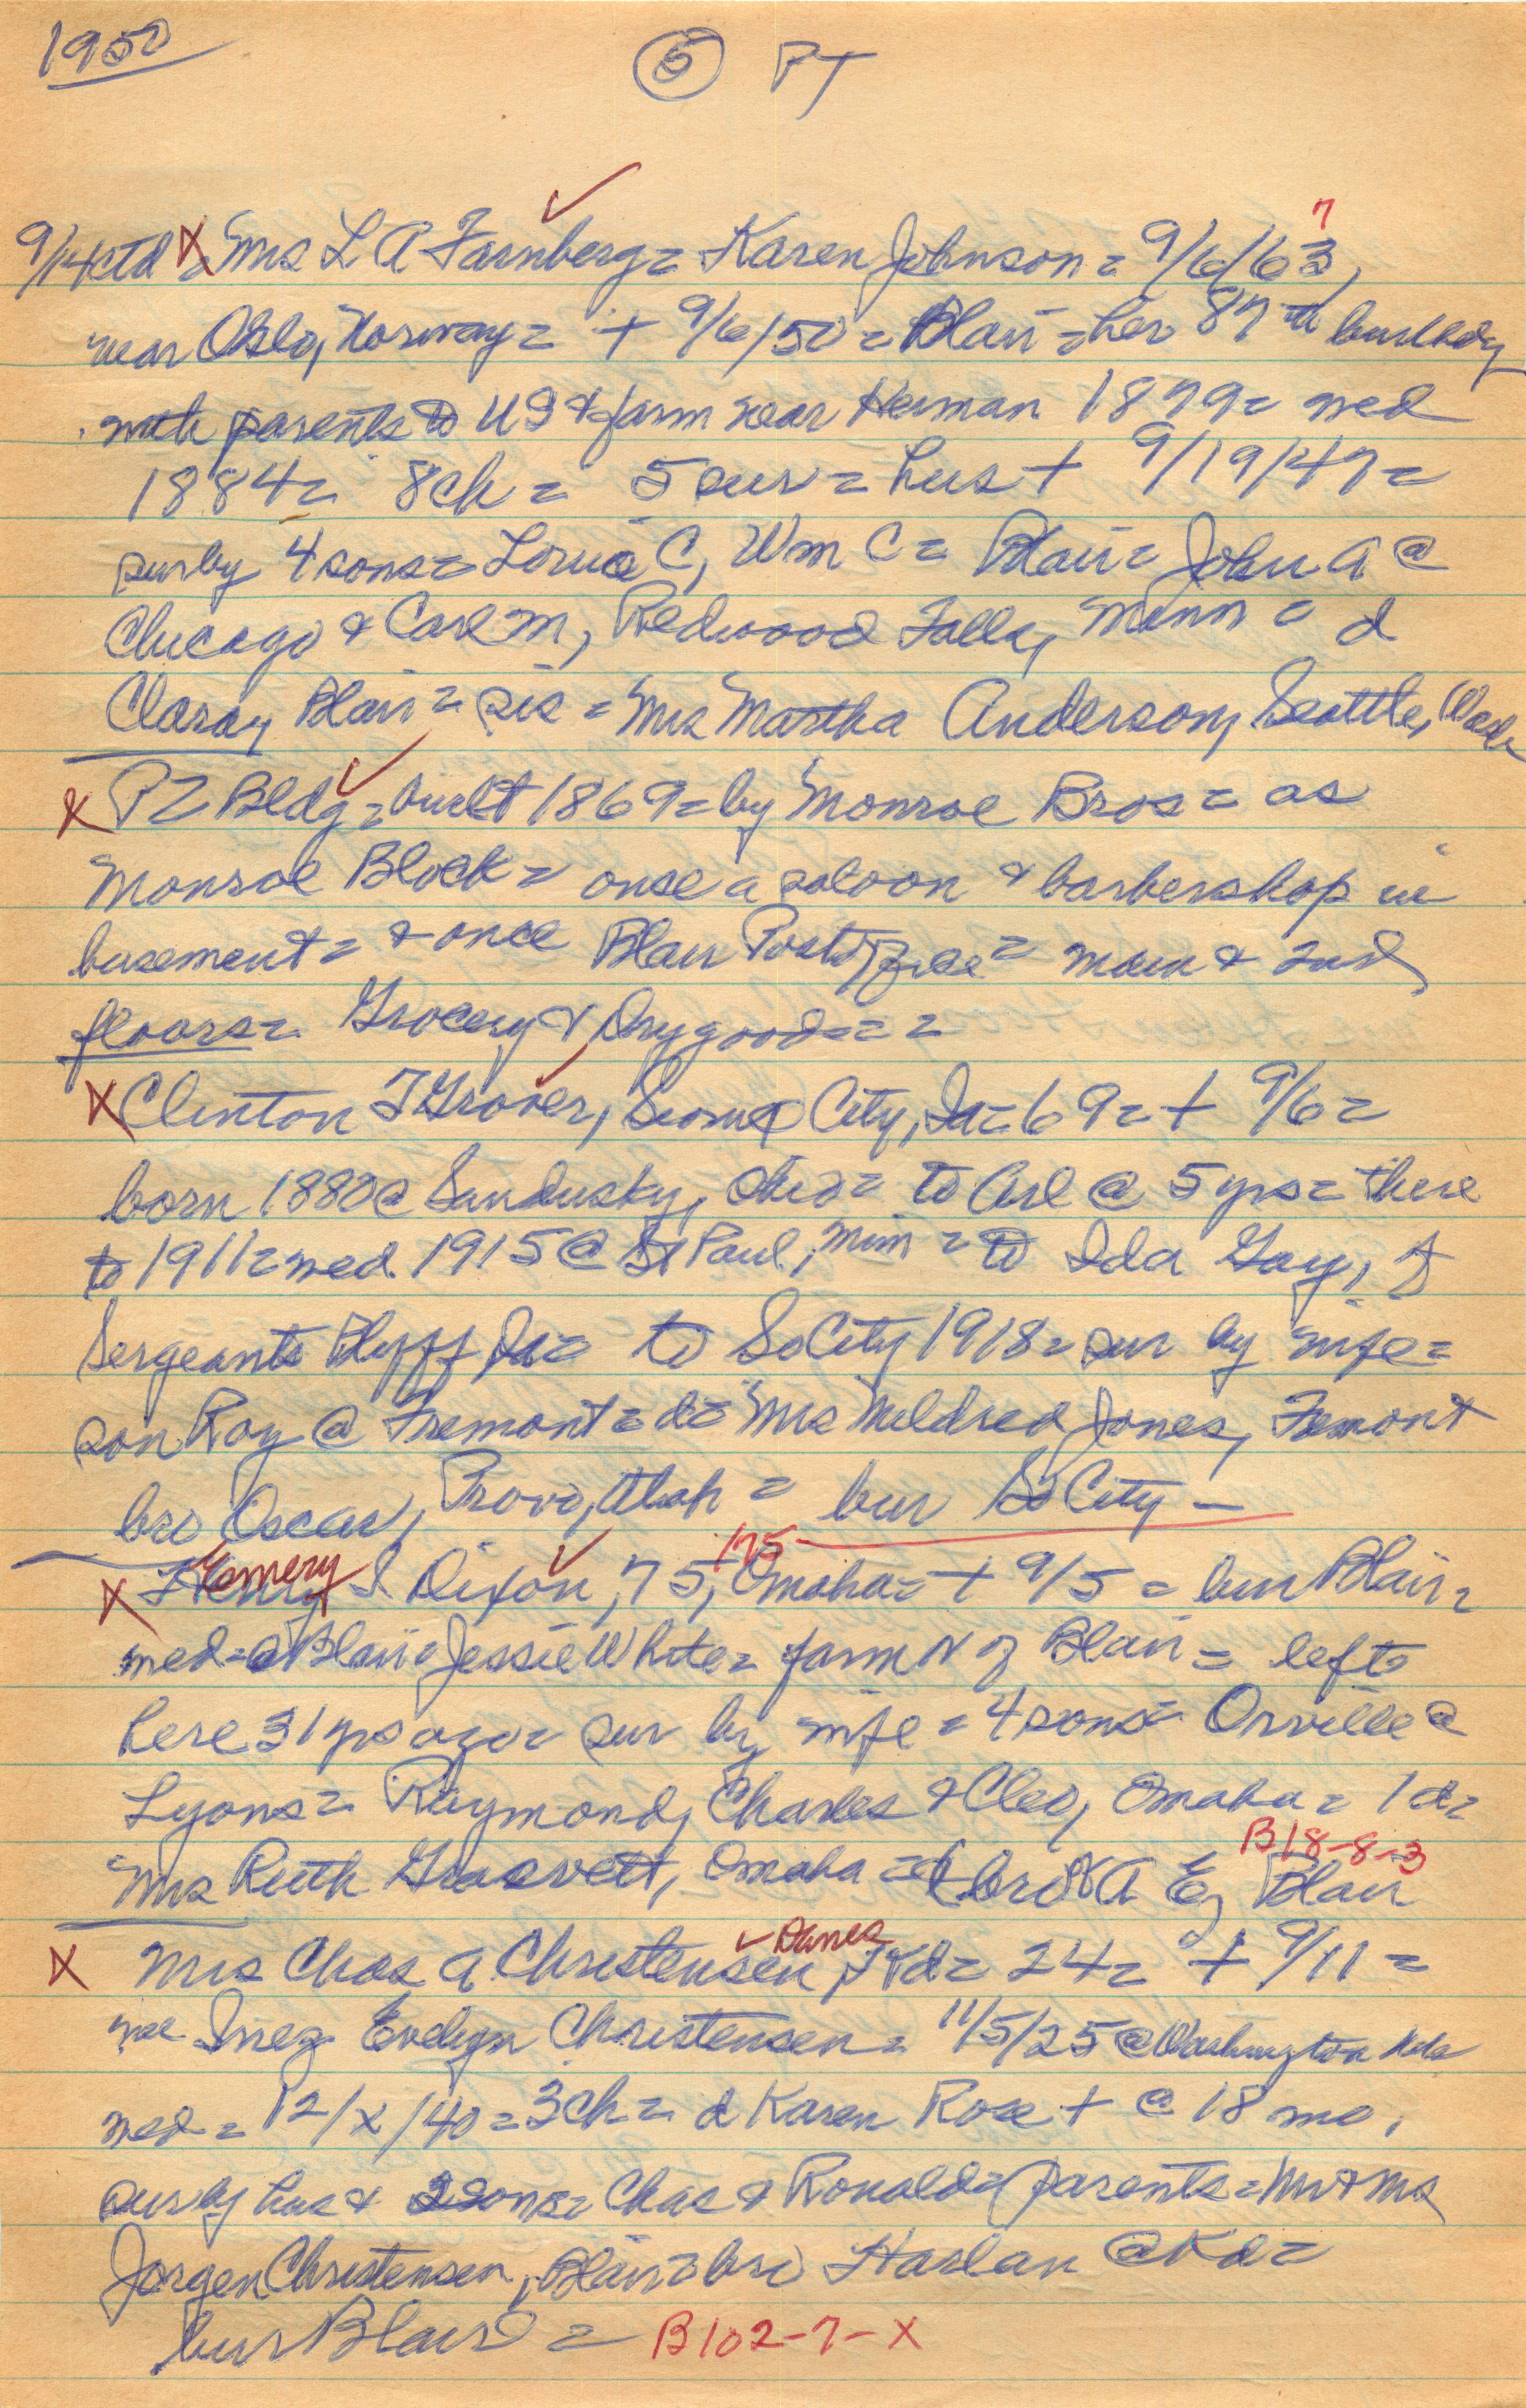 1950
5 PT
7
9/14 ctd X = Mrs L A Farnberg = Karen Johnson = 9/6/63,
near Oslo, Norway = + 9/6/50 = Blair = her 87th birthday
with parents to US & farm near Herman 1879 = med
1884 = 8ch = 5 sur = hus + 9/19/47 =
surby 4 sons = C, Wm C = Blair = John A @
Chicago & Carl M, Redwood Falls, Minn = d
Clara, Blair = sis = Mrs Martha Anderson, Seattle, Wash
X PT Bldg = built 1869 = by Monroe Bros = as
Monroe Block = once a saloon & barbershop in
basement = & once Blair Postoffice = main & 2nd
floors = Grocery & Drygoods = =
X Clinton T Grover, Sioux City, Ia = 69 = + 9/6 =
born 1880 @ Sandusky, Ohio = to Arl @ 5 yrs = there
to 1911 = med 1915 @ St Paul, Minn = to Ida Gay,
Sergeants Bluff Ia = to SoCity 1918 = sur by wife =
son Roy @ Fremont = d = Mrs Mildred Jones, Fremont
bro Oscar, Provo, Utah = bur So City -
Emery 175
X Henry S Dixon, 75, Omaha = + 9/5 = bur Blair =
med = @ Blair = Jessie White = farm N of Blair = left
here 31 yrs ago = sur by wife = 4 sons = Orville @
Lyons = Raymond, Charles & Cleo, Omaha = 1 d =
B18-8-3
Mrs Ruth Omaha = bro A E, Blair
Danes
X Mrs Chas A Christensen, Kd = 24 = + 9/11 =
nee Inez Evelyn Christensen = 11/5/25 @ Washington Neb
med = 12/x/40 = 3ch = d Karen Rose + @ 18 mo,
sur by hus & 2 sons = Chas & Ronald = parents = Mr & Mrs
Jorgen Christensen, Blair = bro Harlan @ Kd =
bur Blair = B102-7-X